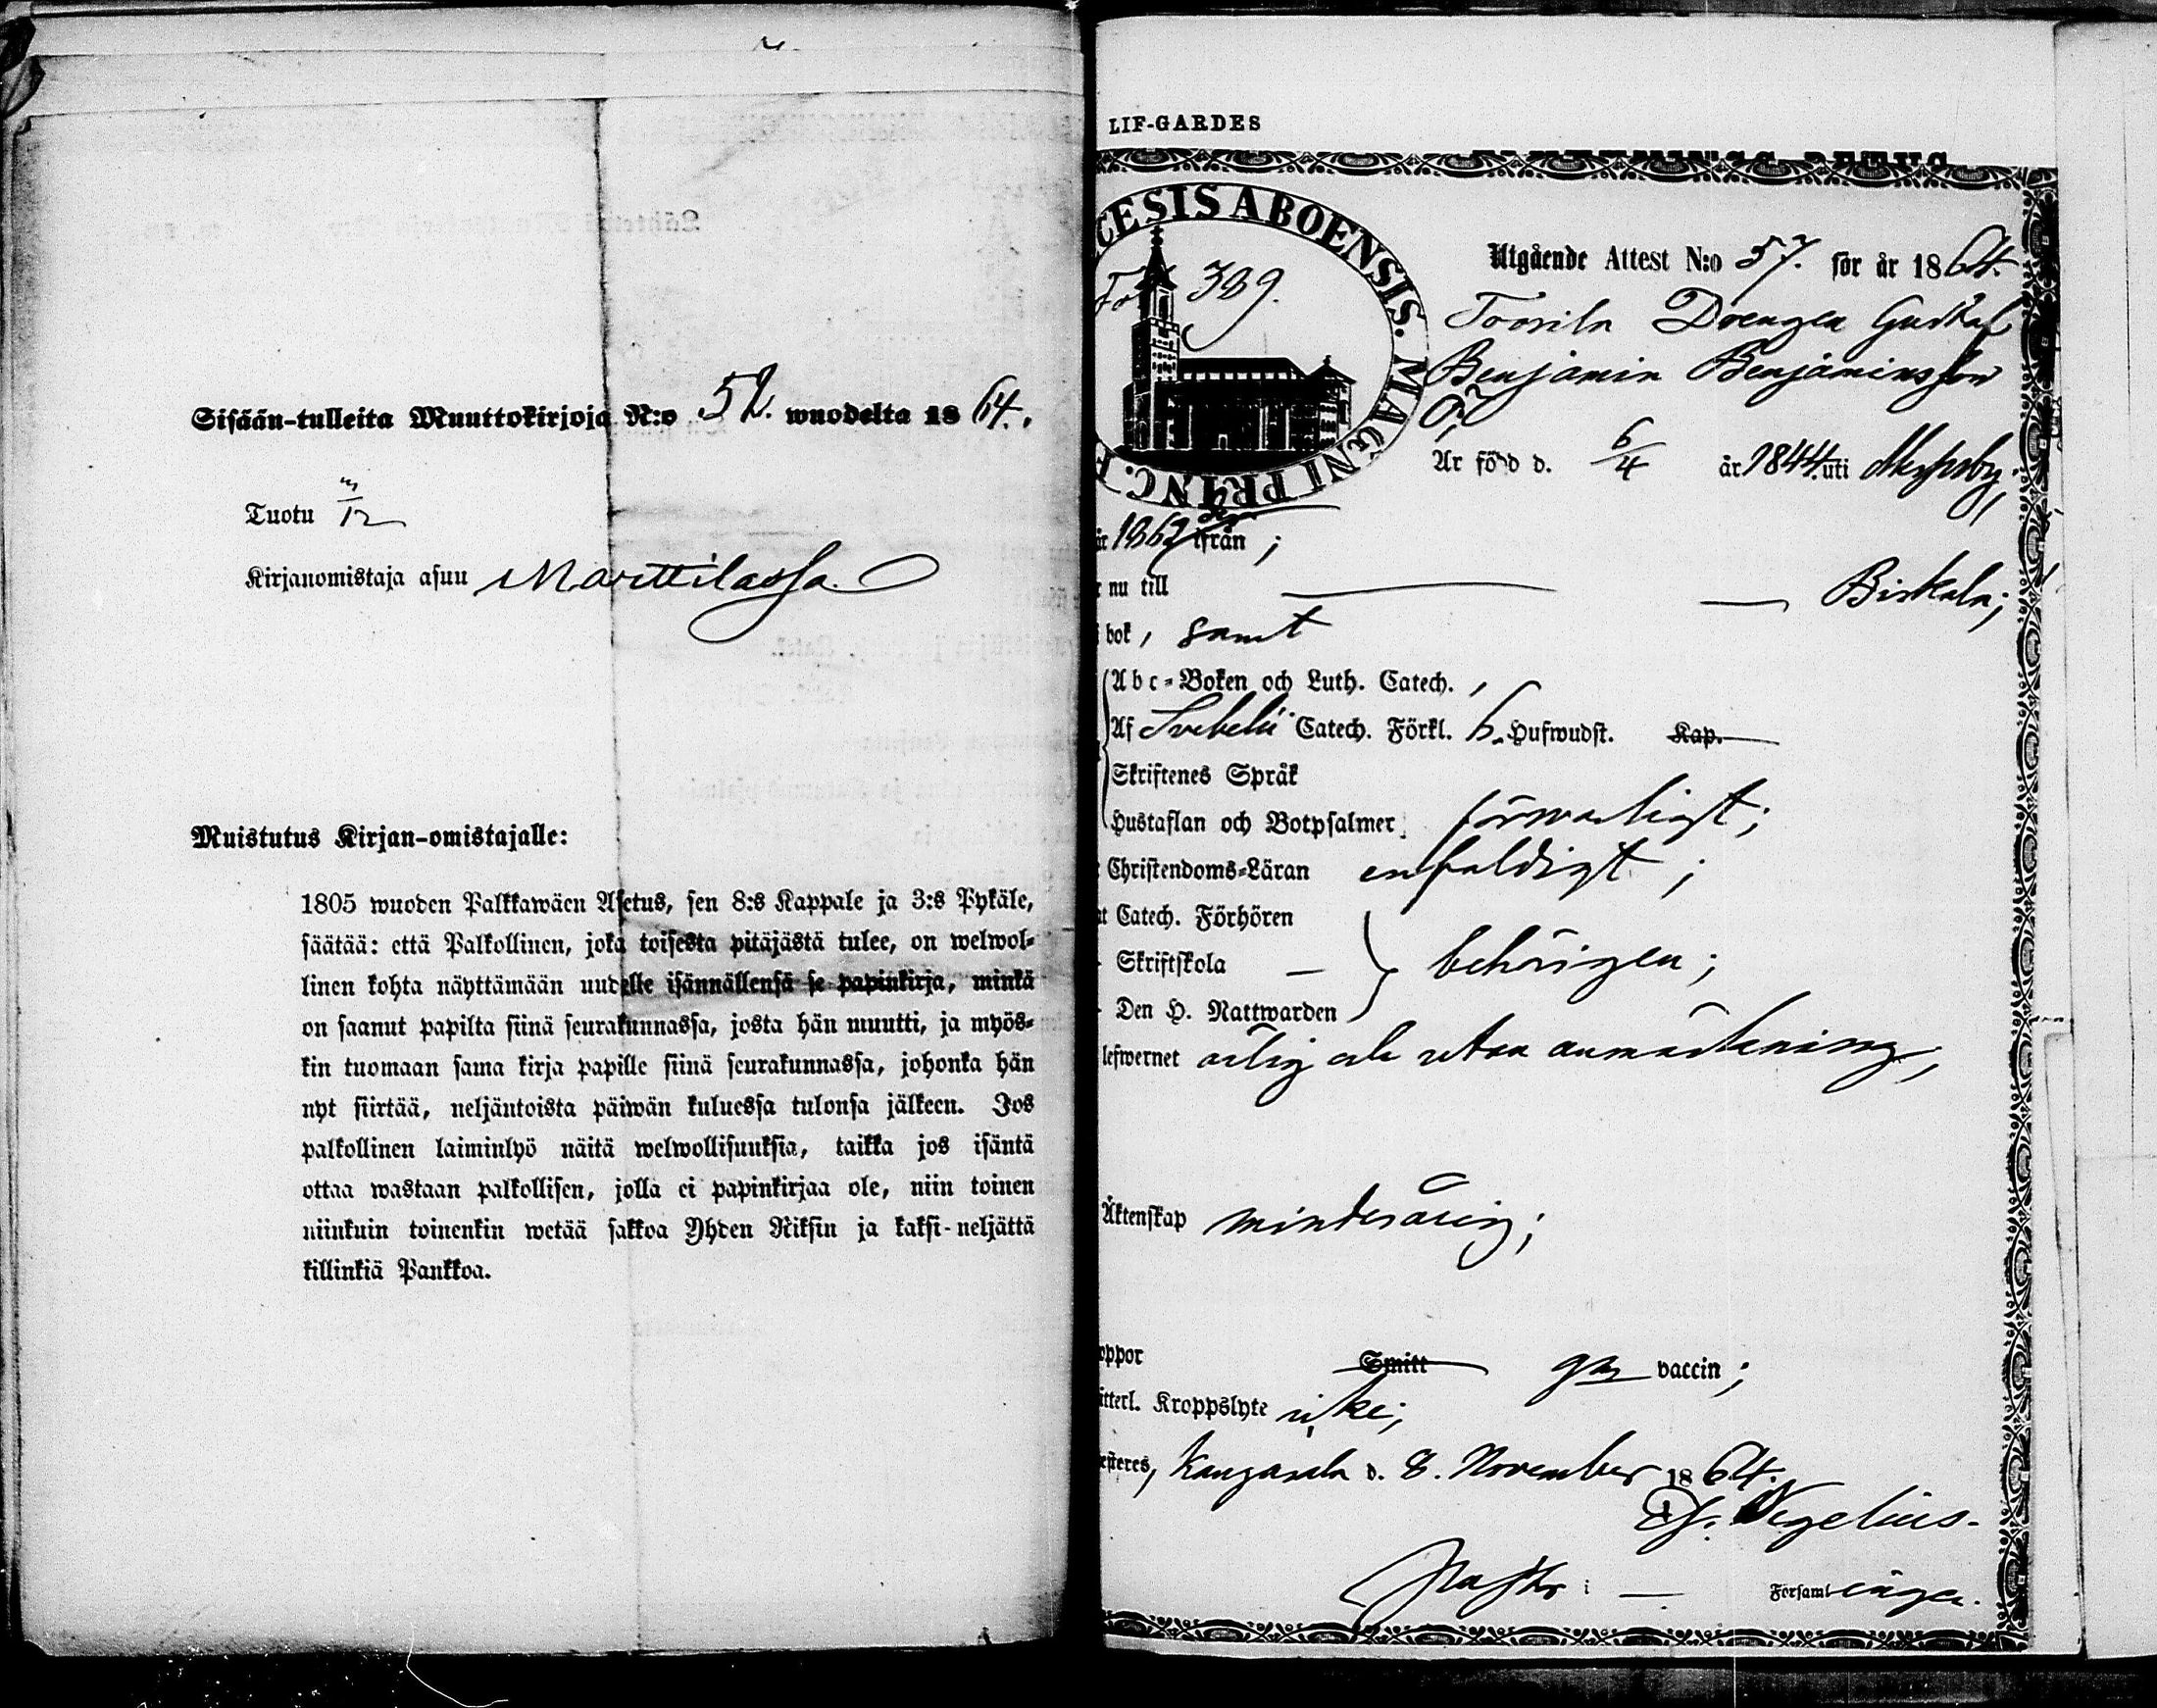 Sisään-tulleita Muuttokirjoja N:o 52. wuodelta 1864.
Tuotu 3/12
Kirjanomistaja asuu Marttilassa.
Muistutus Kirjan-omistajalle:
1805 wuoden Palkkawäen Asetus, sen 8:s Kappale ja 3:s Pykäle,
säätää: että Palkollinen, joka toisesta pitäjästä tulee, on welwol-
linen kohta näyttämään uudelle isännällensä se papinkirja, minkä
on saanut papilta siinä seurakunnassa, josta hän muutti, ja myös-
kin tuomaan sama kirja papille siinä seurakunnassa, johonka hän
nyt siirtää, neljäntoista päiwän kuluessa tulonsa jälkeen. Jos
palkollinen laiminlyö näitä welwollisuuksia, taikka jos isäntä
ottaa wastaan palkollisen, jolla ei papinkirjaa ole, niin toinen
niinkuin toinenkin wetää sakkoa Yhden Riksin ja kaksi-neljättä
killinkiä Pankkoa.
LIF-GARDES
CESIS ABOENSIS. MAGNI PRINC. F
Fol 389.
Utgående Attest N:o 57. för år 1864.
Drengen Gustaf
Benjamin Benjaminsson
Är född d. 6/4 år 1844 uti
år 1862 ifrån ;
nu till — — Birkala;
bok, samt
Abc-Boken och Luth. Catech. ,
Af Svebelii Catech. Förkl. 6. Hufwudst. Kap.
Skriftenes Språk
Hustaflan och Botpsalmer. försvarligt;
Christendoms-Läran enfaldigt ;
Catech. Förhören
Skriftskola — behörigen ;
Den H. Nattwarden
lefwernet ärlig och utan anmärkning;
Äktenskap minderårig;
oppor Smitt gm vaccin ;
itterl. Kroppslyte icke;
esteres, Kangasala d. 8. November 1864.
Negelius.
Pastor i — Församlingen.